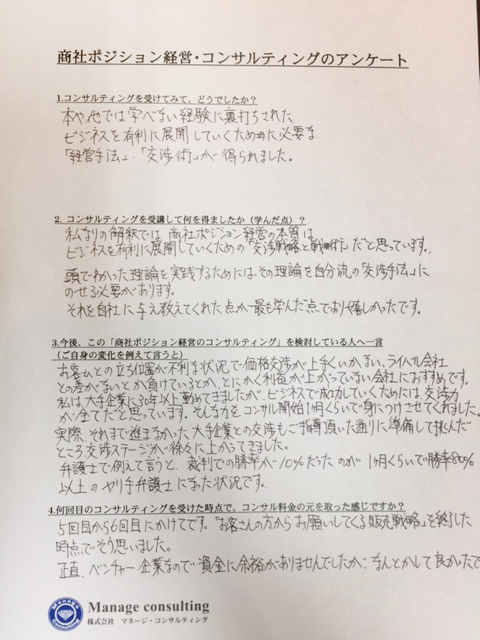 商社ポジション経営・コンサルティングのアンケート
1.コンサルティングを受けてみて、どうでしたか？
本や他では学べない経験に裏打ちされた
ビジネスを有利に展開していくために必要な
「経営手法」・「交渉術」が得られました。
2. コンサルティングを受講して何を得ましたか（学んだ点）？
私なりの解釈では、商社ポジション経営の本質は
ビジネスを有利に展開していくための「交渉戦略と戦術」だと思っています。
頭でわかった理論を実践するためには、その理論を自分流の「交渉手法」に
のせる必要があります。
それを自社に与え教えてくれた点が最も学んだ点であり嬉しかったです。
3.今後、この「商社ポジション経営のコンサルティング」を検討している人へ一言
（ご自身の変化を例えて言うと）
お客さんとの立ち位置が不利な状況で価格交渉が上手くいかない、ライバル会社
との差がないとか負けているとか、とにかく利益が上がっていない会社におすすめです。
私は大手企業に30年以上勤めてきましたが、ビジネスで成功していくためには、交渉力
が全てだと思っています。そんな力をコンサル開始1ヶ月くらいで身につけさせてくれました。
実際、それまで進まなかった大手企業との交渉もご指導頂いた通りに準備して挑んだ
ところ交渉ステージが徐々に上がってきました。
弁護士で例えて言うと、裁判での勝率が10%だったのが1ヶ月くらいで勝率80%
以上のやり手弁護士になった状況です。
4.何回目のコンサルティングを受けた時点で、コンサル料金の元を取った感じですか？
5回目から6回目にかけてです。「お客さんの方からお願いしてくる販売戦略」を終了した
時点でそう思いました。
正直、ベンチャー企業なので資金に余裕がありませんでしたが、なんとかして良かったで
Manage consulting
株式会社 マネージ・コンサルティング